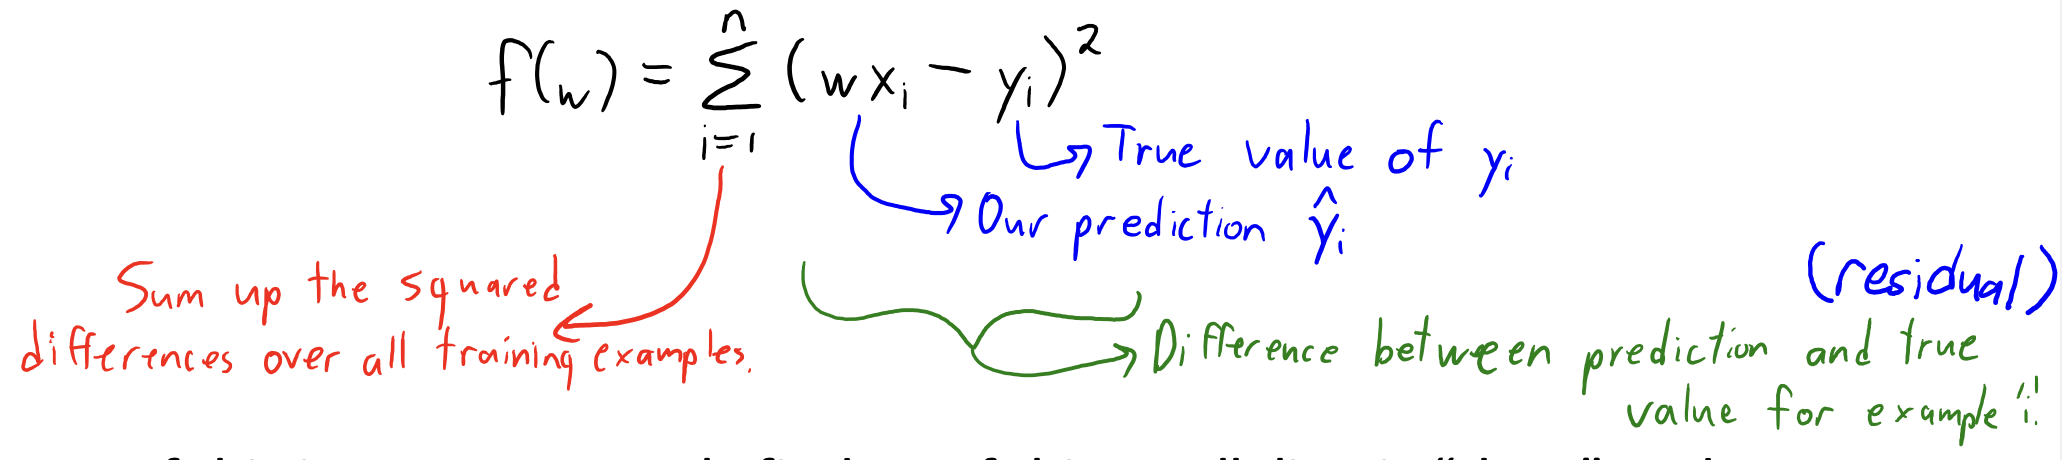 f(w) = Σ (w xᵢ − yᵢ)²
n
i=1
True value of yᵢ
Our prediction ŷᵢ
(residual)
Sum up the squared
differences over all training examples.
Difference between prediction and true
value for example 'i'.